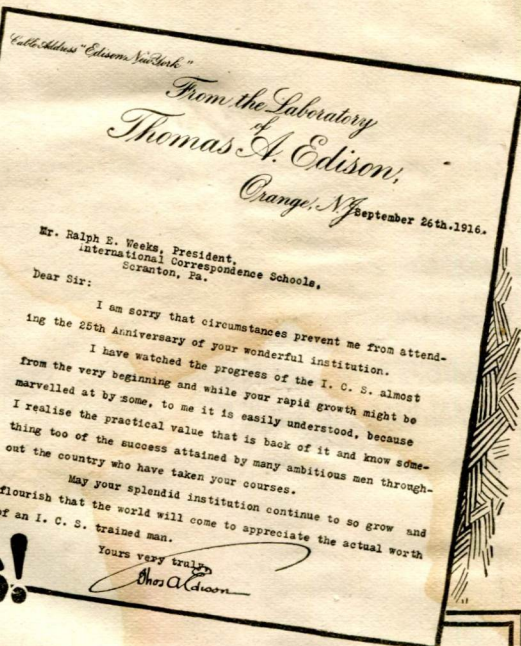 Cable Address "Edison, New York"
From the Laboratory
of
Thomas A. Edison,
Orange, N.J. September 26th.1916.
Mr. Ralph E. Weeks, President,
International Correspondence Schools,
Scranton, Pa.
Dear Sir:
I am sorry that circumstances prevent me from attend-
ing the 25th Anniversary of your wonderful institution.
I have watched the progress of the I. C. S. almost
from the very beginning and while your rapid growth might be
marvelled at by some, to me it is easily understood, because
I realise the practical value that is back of it and know some-
thing too of the success attained by many ambitious men through-
out the country who have taken your courses.
May your splendid institution continue to so grow and
flourish that the world will come to appreciate the actual worth
of an I. C. S. trained man.
Yours very truly,
Thos A Edison
!